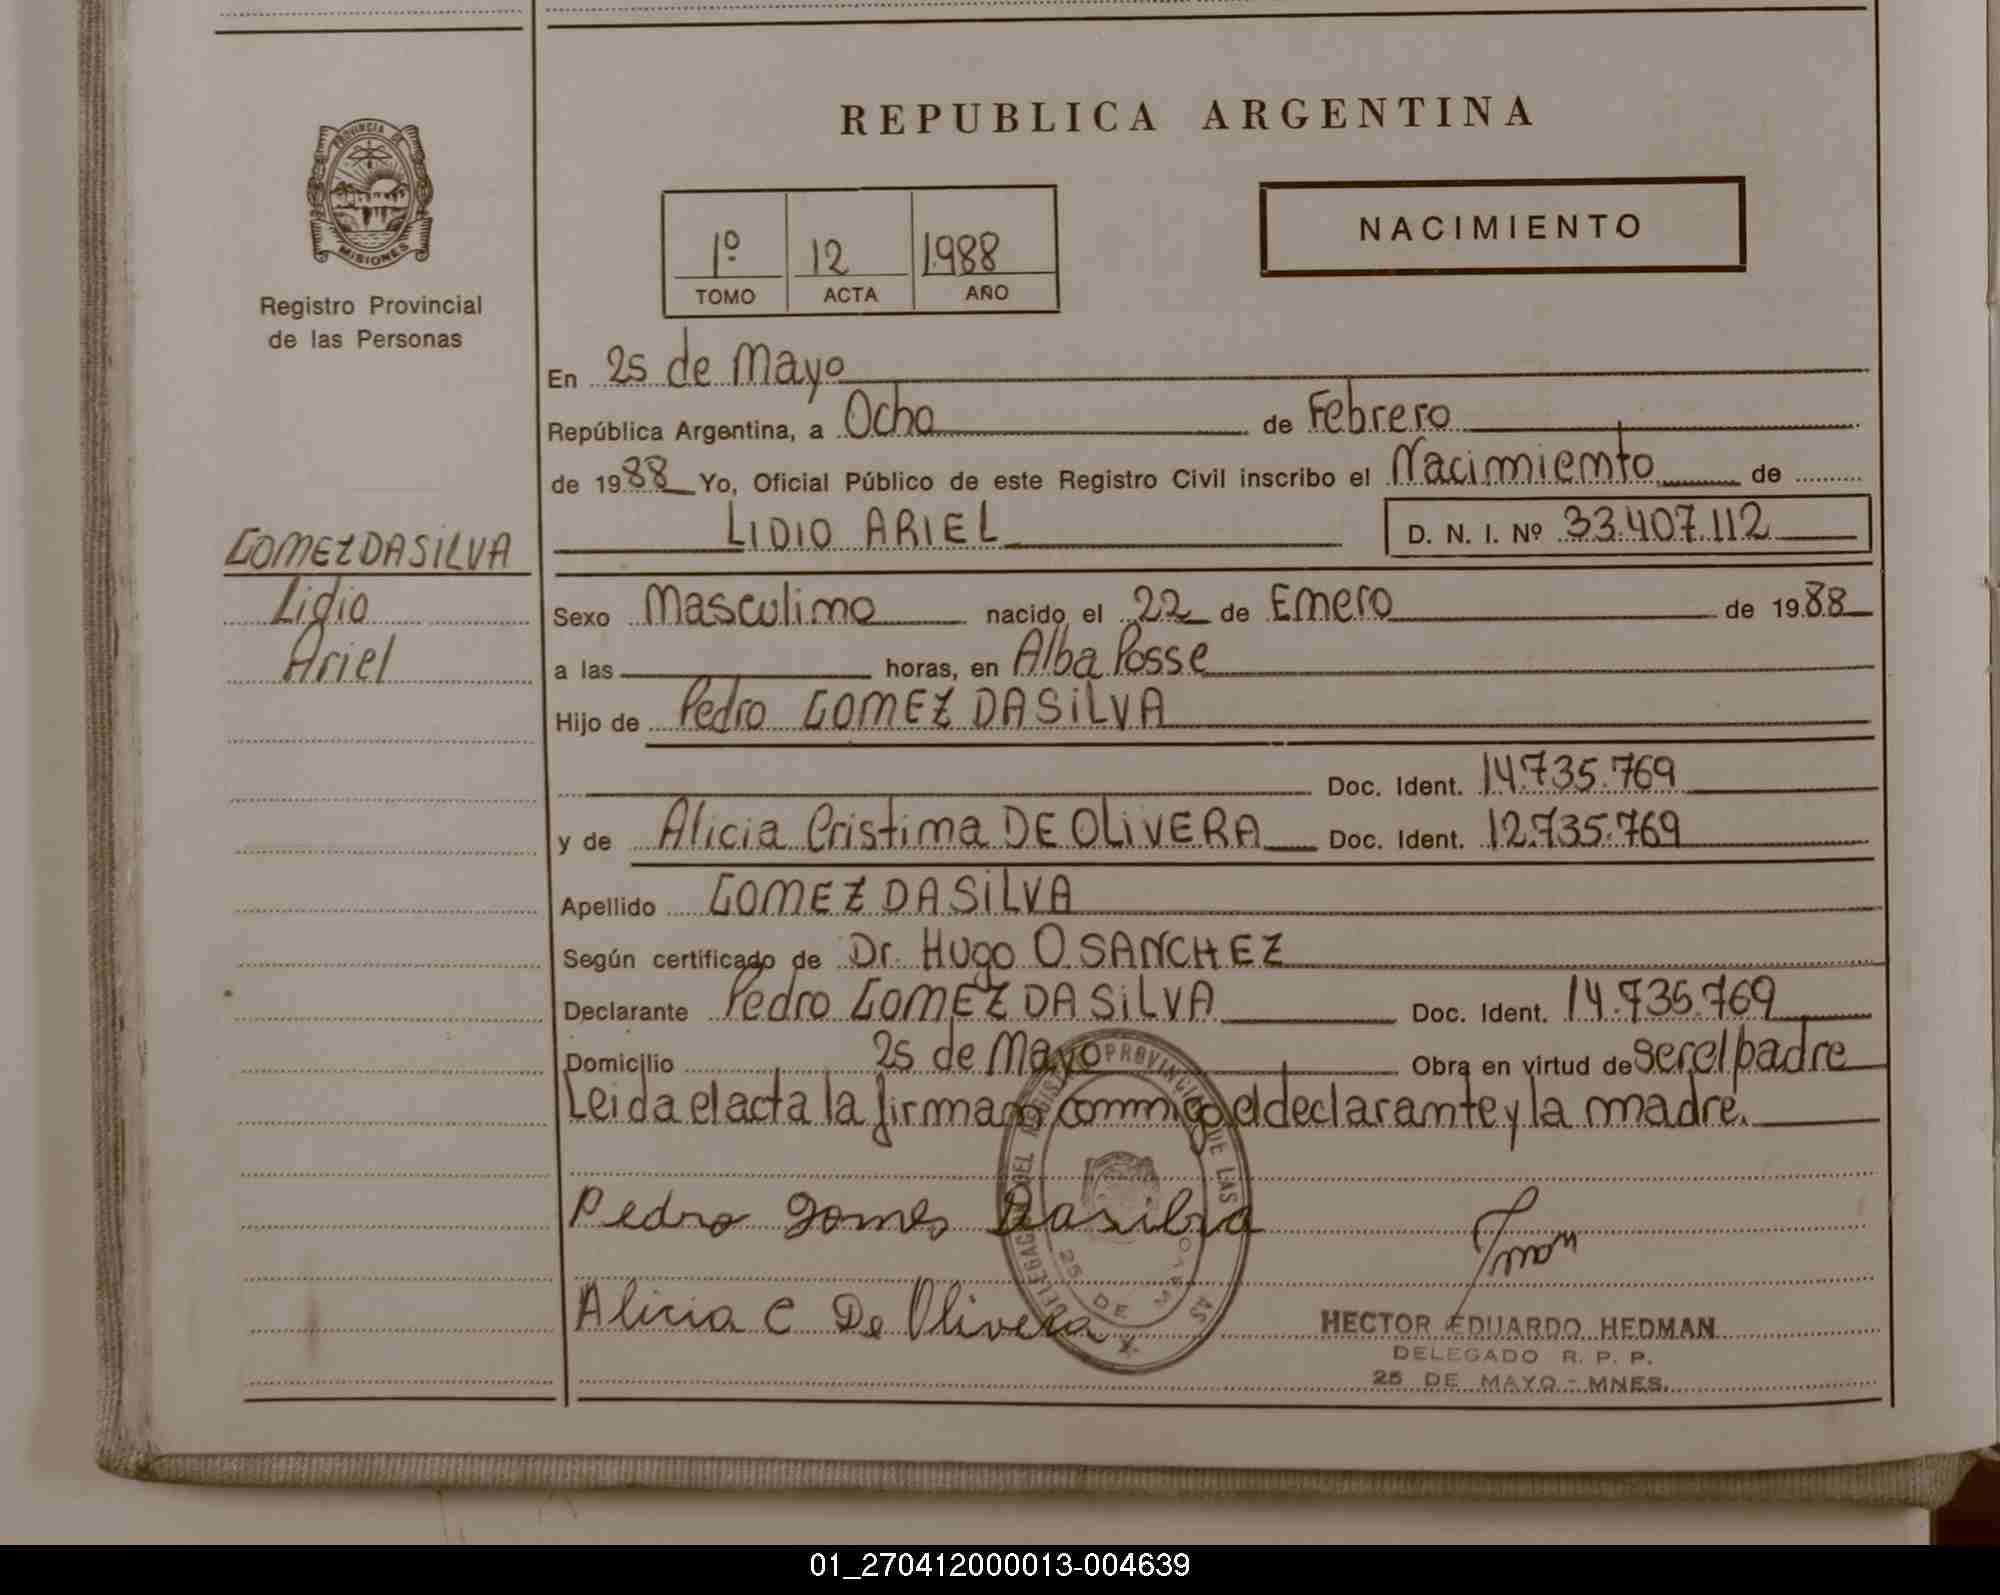 REPUBLICA ARGENTINA
PROVINCIA DE
MISIONES
Registro Provincial
de las Personas
1º 12 1988
TOMO ACTA AÑO
NACIMIENTO
En 25 de Mayo
República Argentina, a Ocho de Febrero
de 1988 Yo, Oficial Público de este Registro Civil inscribo el Nacimiento de
LIDIO ARIEL D. N. I. Nº 33.407.112
GOMEZ DA SILVA
Lidio
Ariel
Sexo Masculino nacido el 22 de Enero de 1988
a las horas, en Alba Posse
Hijo de Pedro GOMEZ DA SILVA
Doc. Ident. 14.735.769
y de Alicia Cristina DE OLIVERA Doc. Ident. 12.735.769
Apellido GOMEZ DA SILVA
Según certificado de Dr. Hugo O. SANCHEZ
Declarante Pedro GOMEZ DA SILVA Doc. Ident. 14.735.769
Domicilio 25 de Mayo Obra en virtud de ser el padre
Leida el acta la firman conmigo el declarante y la madre.
Pedro Gomes Dasilva
Alicia C De Olivera
DELEGACION DEL REGISTRO PROVINCIAL DE LAS
25 DE MAYO
HECTOR EDUARDO HEDMAN
DELEGADO R. P. P.
25 DE MAYO - MNES.
01_270412000013-004639